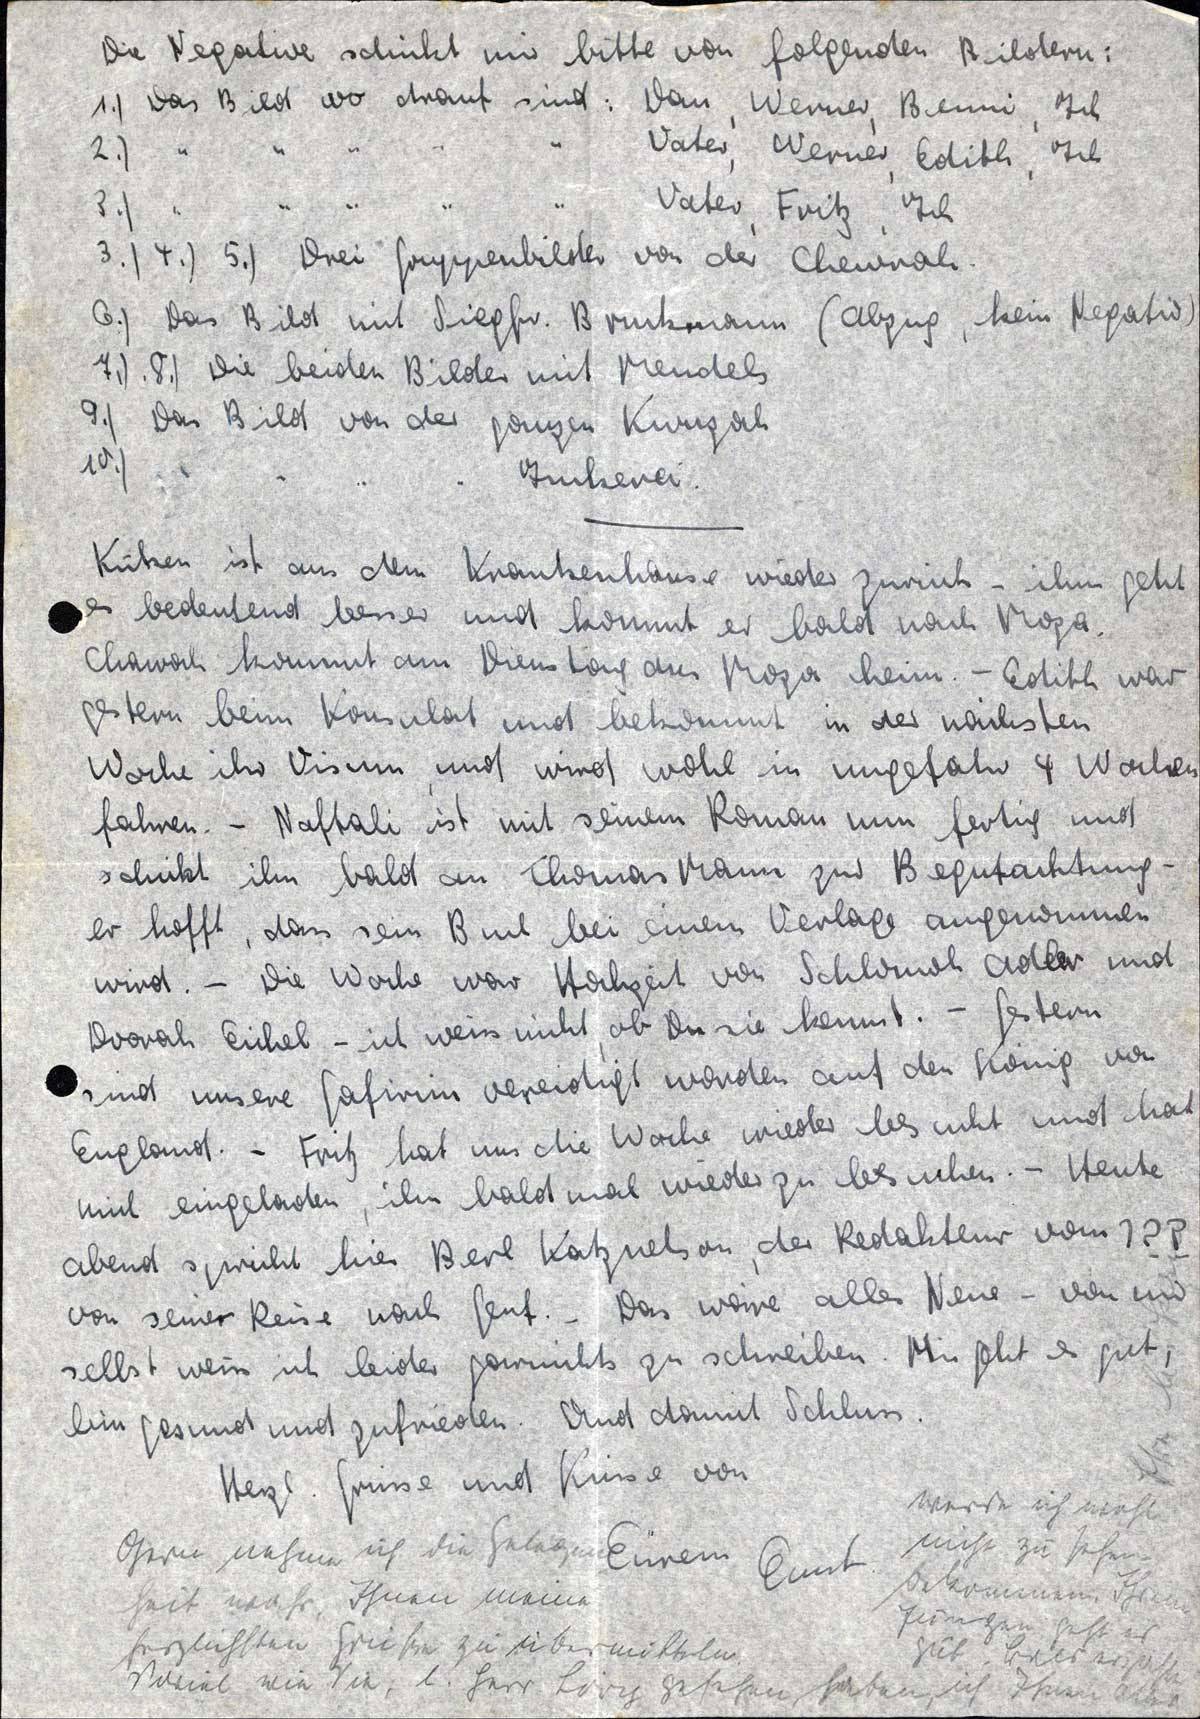 Die Negative schickt mir bitte von folgenden Bildern:
1.) Das Bild wo drauf sind: Dan, Werner, Benni, Ich
2.) " " " " " Vater, Werner, Edith, Ich
3.) " " " " " Vater, Fritz, Ich
3.) 4.) 5.) Drei Gruppenbilder von der Chewrah.
6.) Das Bild mit Siegfr. Bruckmann (Abzug, kein Negativ)
7.) 8.) Die beiden Bilder mit Mendels
9.) Das Bild von der ganzen Kwuzah
10.) " " " " Imkerei.
Küken ist aus dem Krankenhause wieder zurück – ihm geht
es bedeutend besser und kommt er bald nach Moza.
Chawah kommt am Dienstag aus Moza heim. – Edith war
gestern beim Konsulat und bekommt in der nächsten
Woche ihr Visum und wird wohl in ungefähr 4 Wochen
fahren. – Naftali ist mit seinem Roman nun fertig und
schickt ihn bald an Thomas Mann zur Begutachtung –
er hofft, dass sein Buch bei einem Verlage angenommen
wird. – Die Woche war Hochzeit von Schlomoh Adler und
Dvorah Eichel – ich weiss nicht, ob Du sie kennst. – Gestern
sind unsere Gafirim vereidigt worden auf den König von
England. – Fritz hat uns die Woche wieder besucht und hat
mich eingeladen, ihn bald mal wieder zu besuchen. – Heute
abend spricht hier Berl Katznelson, der Redakteur vom
von seiner Reise nach Genf. – Das wäre alles Neue – von mir
selbst weiss ich leider garnichts zu schreiben. Mir geht es gut,
bin gesund und zufrieden. Und damit Schluss.
Herzl. Grüsse und Küsse von
Eurem Ernst.
Gern nehme ich die Gelegen
heit wahr, Ihnen meine
herzlichsten Grüße zu übermitteln.
Soviel wie Sie, l. Herr gesehen haben,
werde ich wohl
nicht zu sehen
bekommen. Ihrem
Jungen geht es
gut.